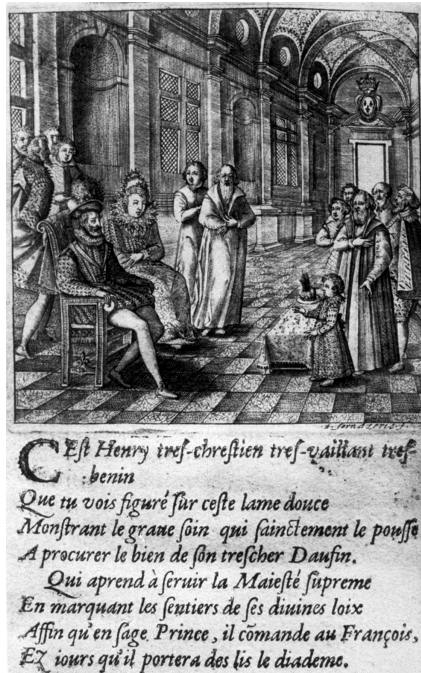 CEst Henry tres-chrestien tres-vaillant tres-
benin
Que tu vois figuré sur ceste lame douce
Monstrant le graue soin qui sainctement le pousse
A procurer le bien de son trescher Daufin.
Qui aprend à seruir la Maiesté supreme
En marquant les sentiers de ses diuines loix
Affin qu'en sage Prince, il cõmande au François,
EZ iours qu'il portera des lis le diademe.